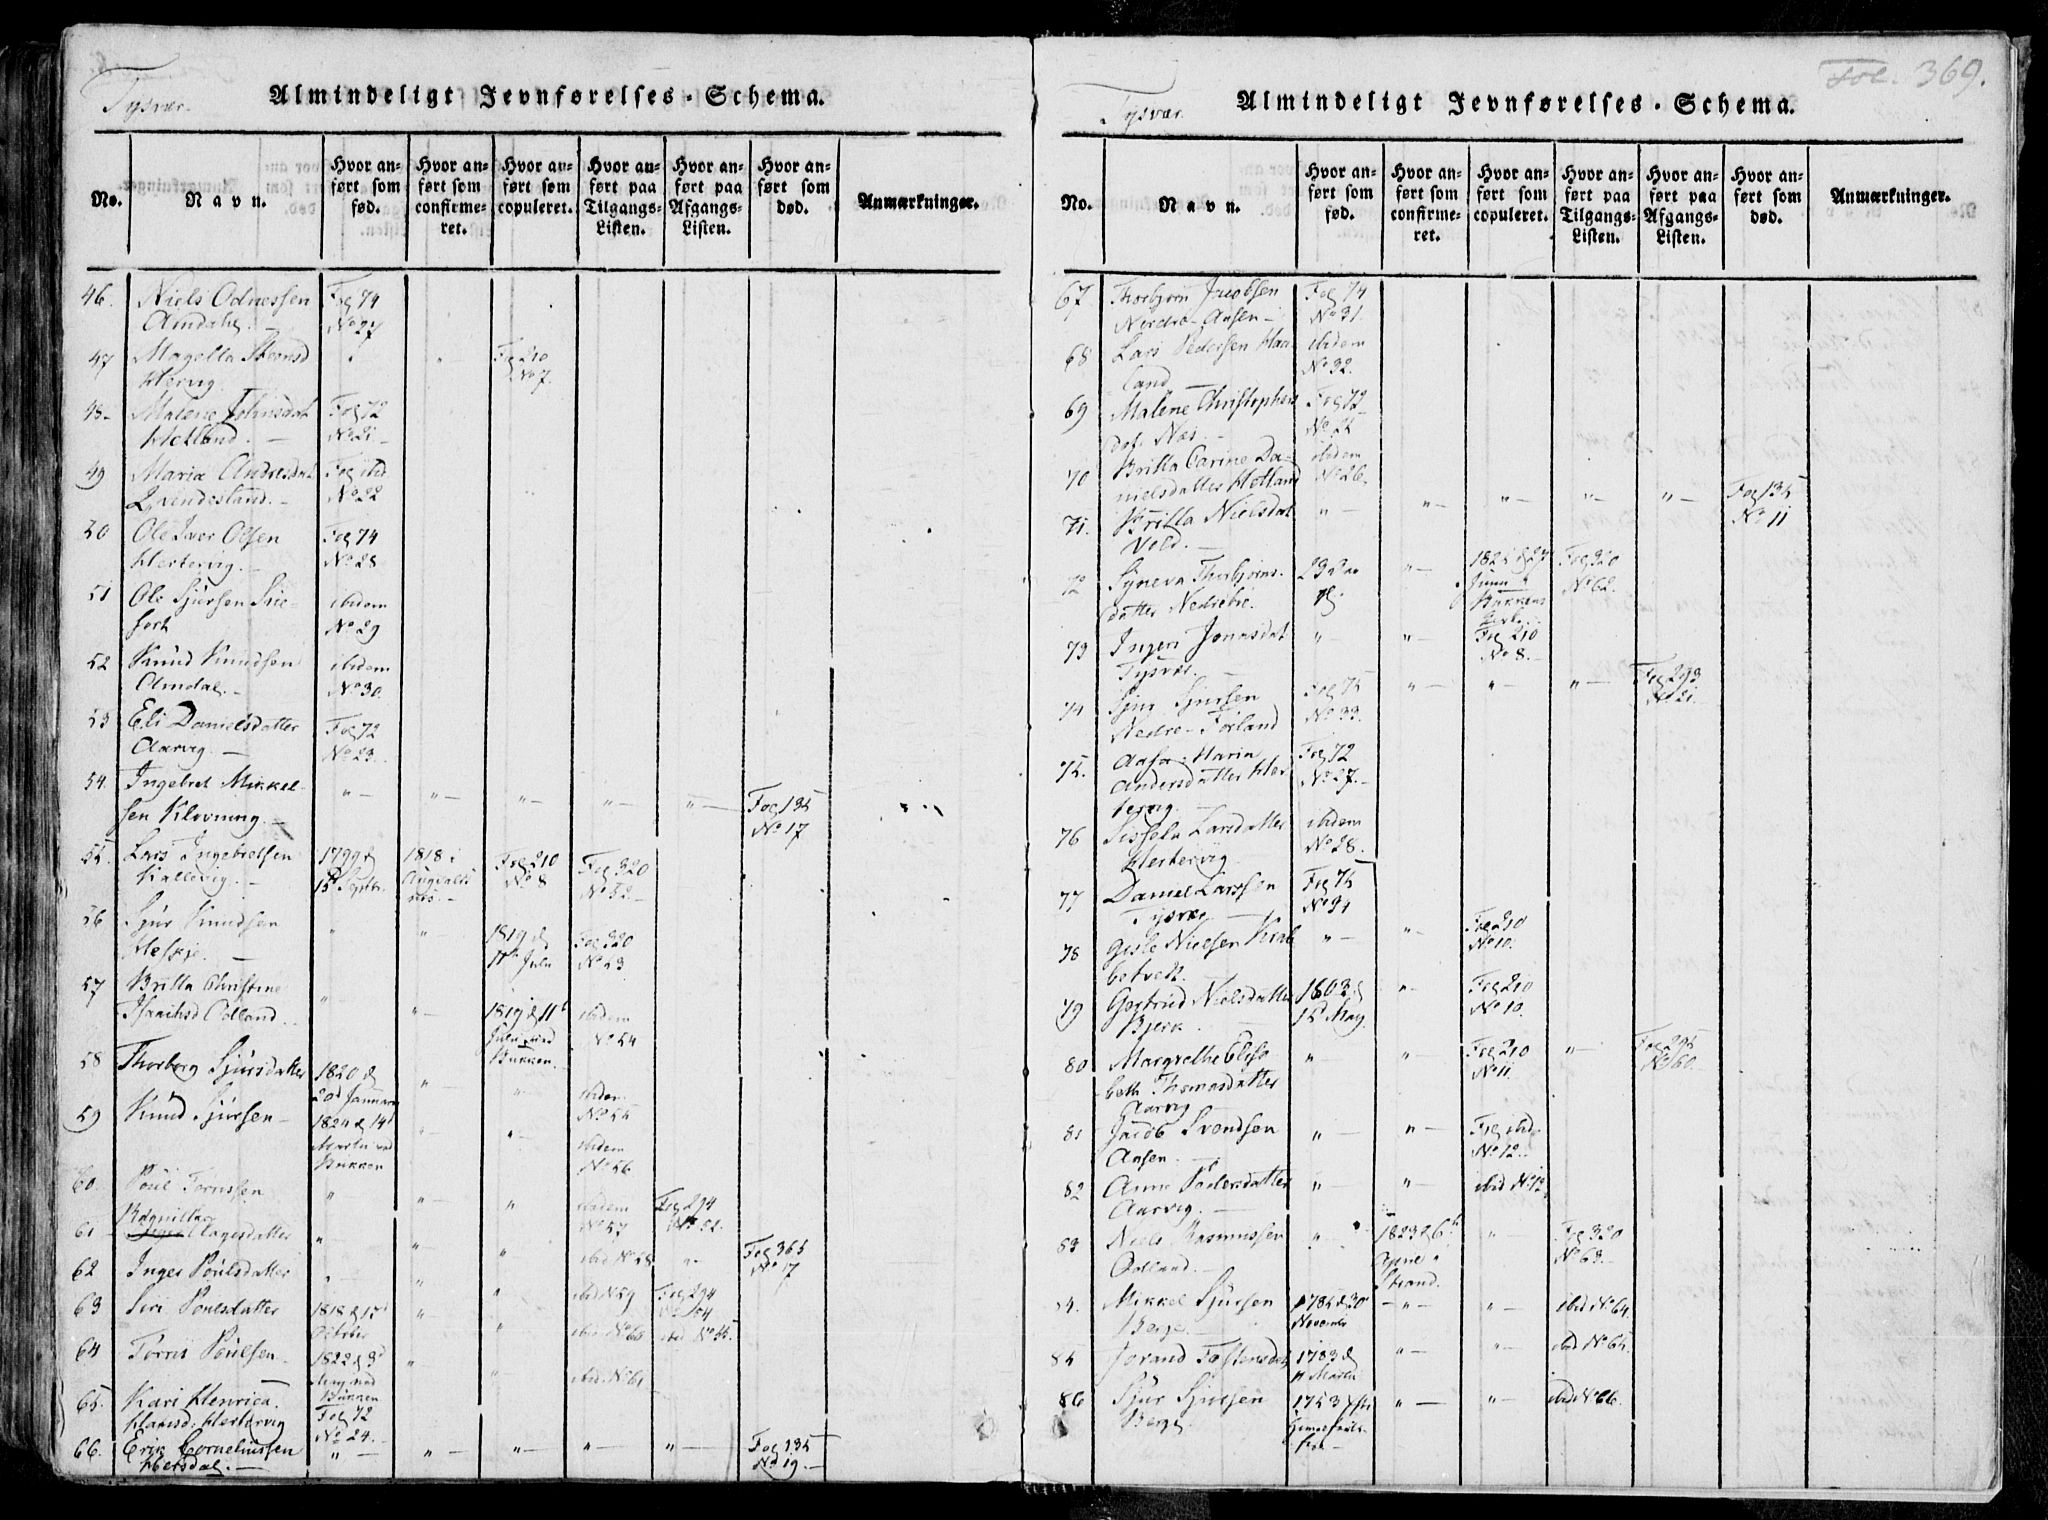 Tysvær.
Almindeligt Jevnførelses-Schema.
No.
Navn.
Hvor anført som fød.
Hvor anført som confirmeret.
Hvor anført som copuleret.
Hvor anført paa Tilgangs-Listen.
Hvor anført paa Afgangs-Listen.
Hvor anført som død.
Anmærkninger.
46. Niels Odnessen Fol 74
Amdahl. No 27
47 Magella " " Fol 210
Hervig. No 7.
48 Malene Johnsdat Fol 72
Hetland. No 21
49 Maria Andresdat Fol ibid
Qvendesland. No 22
50 Ole Iver Olsen Fol 74
Hertervig. No 28
51 Ole Sjursen ibidem
No 29
52 Knud Knudsen ibidem
Amdal. No 30.
53 Eli Danielsdatter Fol 72
Aarvig. No 23.
54. Ingebret Mikkel- " " " " " Fol 135
sen Kløvning. No 17
55. Lars Ingebretsen 1799 d 1818 i Fol 210 Fol 320
Kallevig. 15 Septbr. Augvalds No 8 No 52.
næs.
56 Sjur Knudsen " " 1819 d Fol 320
11te Julii No 53
57 Britta Christine " " 1819 d 11t ibidem
Odland. Julii ved No 54
Bukken.
58 Thorborg Sjursdatter 1820 d " " ibidem
20d Januari No 55
59 Knud Sjursen 1824 d 14d " " ibidem
Martii ved No 56
Bukken
60 Poul Tornssen " " " ibidem Fol 294
No 57 No 52.
61 Ragnilla Aagesdatter " " " ibid No 58 " Fol 365
No 17
62 Inger Poulsdatter " " " ibid No 59 Fol 294
No 54
63 Siri Poulsdatter 1818 d 15d " " ibid No 60 ibid No 55.
October
64 Torris Poulsen 1822 d 3d " " ibid No 61
May ved
Bukken
65. Kari Henrica Fol 72
Hansd: Hertervig No 24.
66. Erik Corneliussen " " " " " Fol 135
Hetsdal. No 19.
Fol. 369.
Tysvær.
Almindeligt Jevnførelses-Schema.
No.
Navn.
Hvor anført som fød.
Hvor anført som confirmeret.
Hvor anført som copuleret.
Hvor anført paa Tilgangs-Listen.
Hvor anført paa Afgangs-Listen.
Hvor anført som død.
Anmærkninger.
67 Thorbjørn Jacobsen Fol 74
Nordre-Aasen No 31.
68 Lars Pedersen Haa- ibidem
land No 32.
69 Malene Christophers Fol 72
dat. Næs. No 25
70 Britta Carine Da- ibidem
nielsdatter Hetland No 26.
71. Britta Nielsdat " " " " " Fol 135
Vold. No 11
72 Syneva Thorbjørns- 23 " 1825 d 24 Fol 320
datter Nedrebø. Junii No 62.
Bukkens
Kirke
73 Inger Jonasdat " " Fol 210
Tysvær. No 8.
74 Sjur Sjursen Fol 75 " " " Fol 293
Nedre-Førland No 33. No 21.
75. Aasa Maria Fol 72
Andersdatter Her No 27.
tervig.
76 Sissela Larsdatter ibidem
Hertervig No 28.
77 Daniel Larssen Fol 75
Tysvær No 34
78 Gisle Nielsen Krab " " Fol 210
betvedt. No 10.
79 Gjertrud Nielsdatter 1803 d " Fol 210
Bjerk 15 May. No 10.
80 Margrethe Elisa " " Fol 210 " Fol 295
beth Thomasdatter No 11. No 60.
Aarvig
81 Jacob Svendsen " " Fol ibid
Aasen. No 12.
82 Anne Pedersdatter " " ibid No 12
Aarvig.
83 Niels Rasmussen " 1823 d 6t " Fol 320
Odland. No 63.
Strand.
84. Mikkel Sjursen 1785 d 30 " " ibid No 64.
Berge November
85 Jorand Tostensdat 1783 d " " ibid No 65.
11 Martii
86 Sjur Sjursen 1753 " " ibid No 66.
Berge